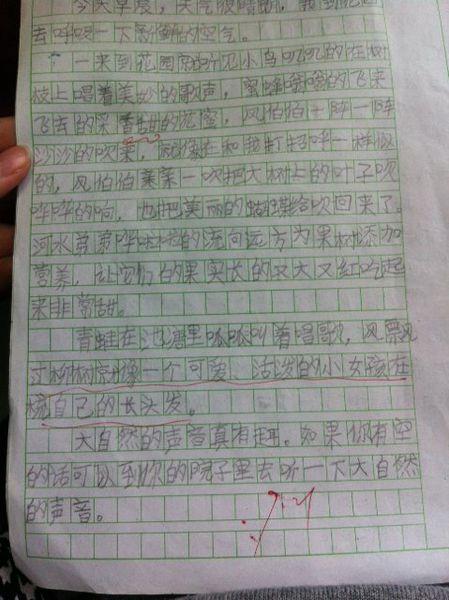 今天早晨，天气很晴朗，我到花园
去呼吸一下新鲜的空气。
一来到花园就听见小鸟叽叽的在树
枝上唱着美妙的歌声，蜜蜂嗡嗡的飞来
飞去的采香甜的花蜜，风伯伯一阵一阵
沙沙的吹来，就像在和我打招呼一样似
的，风伯伯莱莱一吹把大树上的叶子吹
哗哗的响，也把美丽的蝴蝶给吹回来了。
河水哗啦啦的流向远方为果树添加
营养，让它们的果实长的又大又红吃起
来非常甜。
青蛙在池塘里呱呱叫着唱歌，风飘
过柳树就像一个可爱、活泼的小女孩在
梳自己的长头发。
大自然的声音真有趣。如果你有空
的话可以到你的院子里去听一下大自然
的声音。